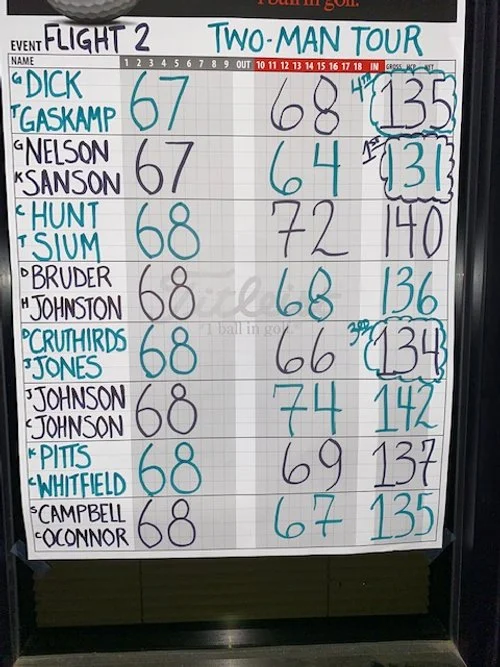 1 ball in golf.
EVENT FLIGHT 2 TWO-MAN TOUR
NAME 1 2 3 4 5 6 7 8 9 OUT 10 11 12 13 14 15 16 17 18 IN GROSS HCP NET
G DICK
T GASKAMP 67 68 4TH 135
G NELSON
K SANSON 67 64 1ST 131
C HUNT
T SIUM 68 72 140
D BRUDER
H JOHNSTON 68 68 136
Titleist
#1 ball in golf.
D CRUTHIRDS
J JONES 68 66 3RD 134
J JOHNSON
C JOHNSON 68 74 142
K PITTS
C WHITFIELD 68 69 137
S CAMPBELL
C OCONNOR 68 67 135